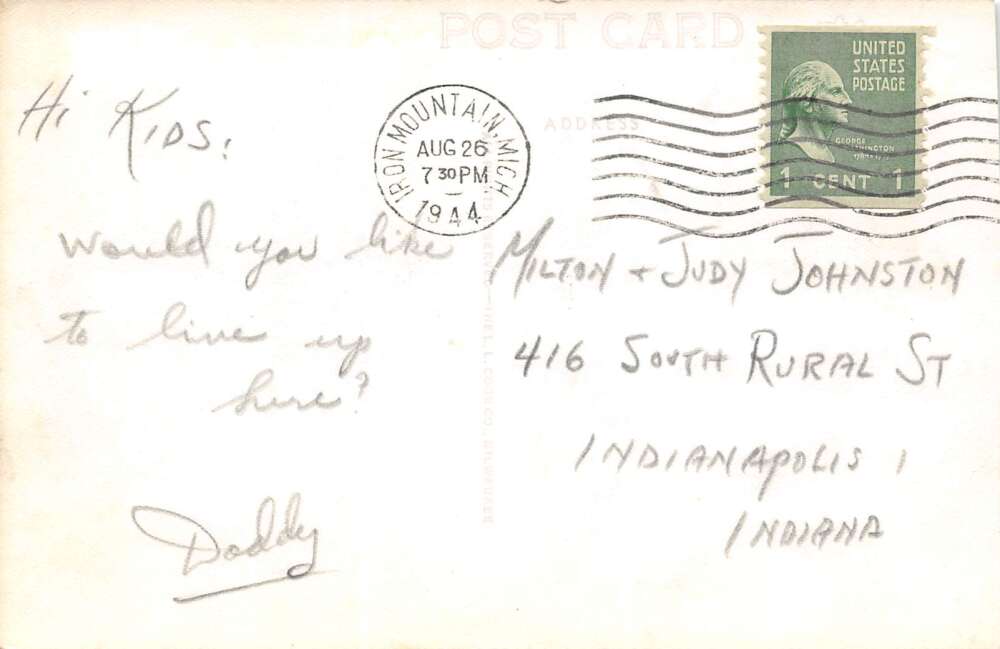 POST CARD
ADDRESS
UNITED
STATES
POSTAGE
GEORGE
WASHINGTON
1 CENT 1
IRON MOUNTAIN, MICH
AUG 26
7 30 PM
1944
Hi KIDS:
would you like
to live up
here?
Daddy
MILTON + JUDY JOHNSTON
416 SOUTH RURAL ST
INDIANAPOLIS 1
INDIANA